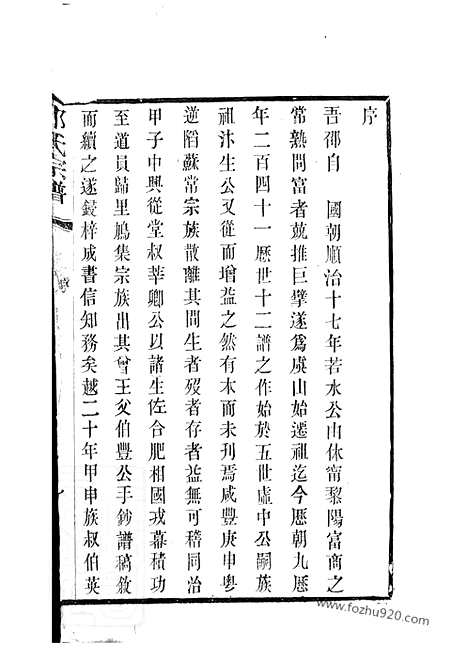 序
吾邵自 國朝順治十七年若水公由休甯黎陽富商之
常熟問富者競推巨擘遂爲虞山始遷祖迄今歷朝九歷
年二百四十一歷世十二譜之作始於五世虛中公嗣族
祖汴生公又從而增益之然有本而未刊焉咸豐庚申粵
逆陷蘇常宗族散離其間生者歿者存者益無可稽同治
甲子中興從堂叔莘卿公以諸生佐合肥相國戎幕積功
至道員歸里鳩集宗族出其曾王父伯豐公手鈔譜稿敘
而續之遂鋟梓成書信知務矣越二十年甲申族叔伯英
邵氏宗譜
www.fozhu920.com